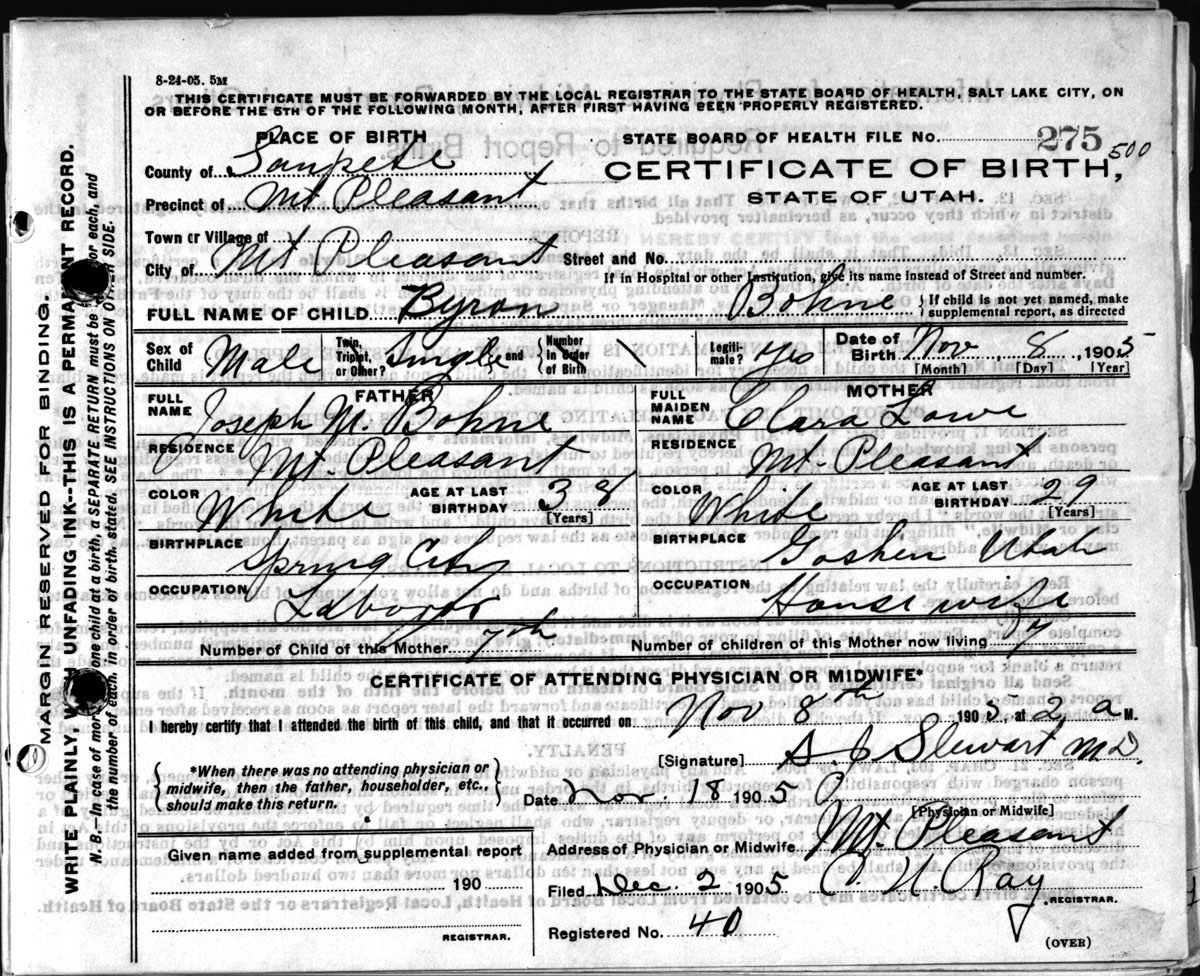 8-24-05. 5M
THIS CERTIFICATE MUST BE FORWARDED BY THE LOCAL REGISTRAR TO THE STATE BOARD OF HEALTH, SALT LAKE CITY, ON
OR BEFORE THE 5TH OF THE FOLLOWING MONTH, AFTER FIRST HAVING BEEN PROPERLY REGISTERED.
PLACE OF BIRTH
STATE BOARD OF HEALTH FILE No. 275
500
County of Sanpete
CERTIFICATE OF BIRTH,
Precinct of Mt Pleasant
STATE OF UTAH.
Town or Village of
City of Mt Pleasant Street and No.
If in Hospital or other Institution, give its name instead of Street and number.
FULL NAME OF CHILD Byron Bohne { If child is not yet named, make
supplemental report, as directed
Sex of Child Male Twin, Triplet, or Other? Single and { Number in Order of Birth Legitimate? yes Date of Birth Nov 8, 1905
[Month] [Day] [Year]
FATHER
MOTHER
FULL NAME Joseph M. Bohne
FULL MAIDEN NAME Clara Lowe
RESIDENCE Mt. Pleasant
RESIDENCE Mt. Pleasant
COLOR White AGE AT LAST BIRTHDAY 38 [Years]
COLOR White AGE AT LAST BIRTHDAY 29 [Years]
BIRTHPLACE Spring City
BIRTHPLACE Goshen Utah
OCCUPATION Laborer
OCCUPATION Housewife
Number of Child of this Mother 7th Number of children of this Mother now living 7
CERTIFICATE OF ATTENDING PHYSICIAN OR MIDWIFE*
I hereby certify that I attended the birth of this child, and that it occurred on Nov 8th 1905, at 2 a M.
[Signature] Stewart M D.
*When there was no attending physician or
midwife, then the father, householder, etc.,
should make this return.
Date Nov. 18 1905
[Physician or Midwife]
Address of Physician or Midwife Mt. Pleasant
Given name added from supplemental report
190
REGISTRAR.
Filed Dec. 2 1905 Ray
REGISTRAR.
Registered No. 40
(OVER)
MARGIN RESERVED FOR BINDING.
WRITE PLAINLY, UNFADING INK--THIS IS A PERMANENT RECORD.
N.B.--In case of more one child at a birth, a SEPARATE RETURN must be for each, and
the number of each, in order of birth, stated. SEE INSTRUCTIONS ON OTHER SIDE.